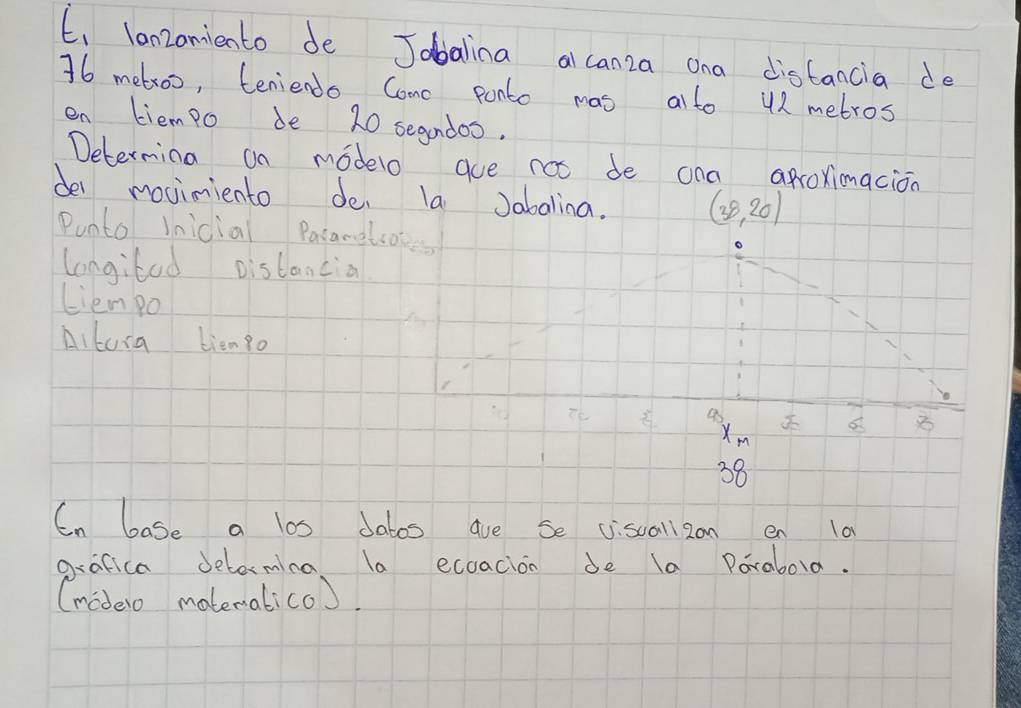 E, lanzamiento de Jabalina alcanza una distancia de
76 metros, teniendo como punto mas alto 42 metros
en tiempo de 20 segundos.
Determina un módelo que nos de una aproximación
del movimiento de la Jabalina.
(38,20)
Punto Inicial
Longitud Distancia
tiempo
Altura tiempo
Xm
38
En base a los datos que se visualizan en la
gráfica determina la ecuación de la Párabola.
(módelo matematico).